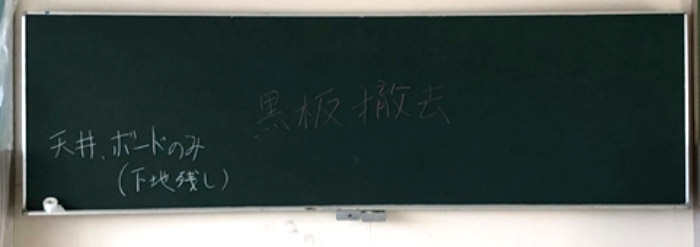 黒板撤去
天井.ボードのみ
(下地残し)